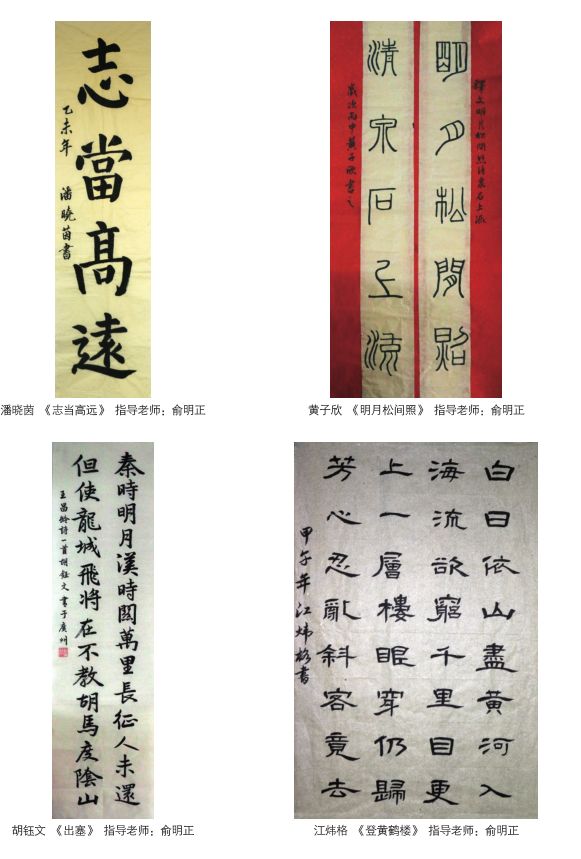 志當高遠
乙未年 潘曉茵書
潘晓茵 《志当高远》 指导老师：俞明正
釋文明月松間照清泉石上流
明月松間照
清泉石上流
歲次丙申黃子欣書之
黄子欣 《明月松间照》 指导老师：俞明正
秦時明月漢時關萬里長征人未還
但使龍城飛将在不教胡馬度陰山
王昌齡詩一首胡鈺文書于廣州
胡钰文 《出塞》 指导老师：俞明正
白日依山盡黃河入
海流欲窮千里目更
上一層樓眼穿仍歸
芳心忍亂斜客竟去
甲午年江炜格書
江炜格 《登黄鹤楼》 指导老师：俞明正